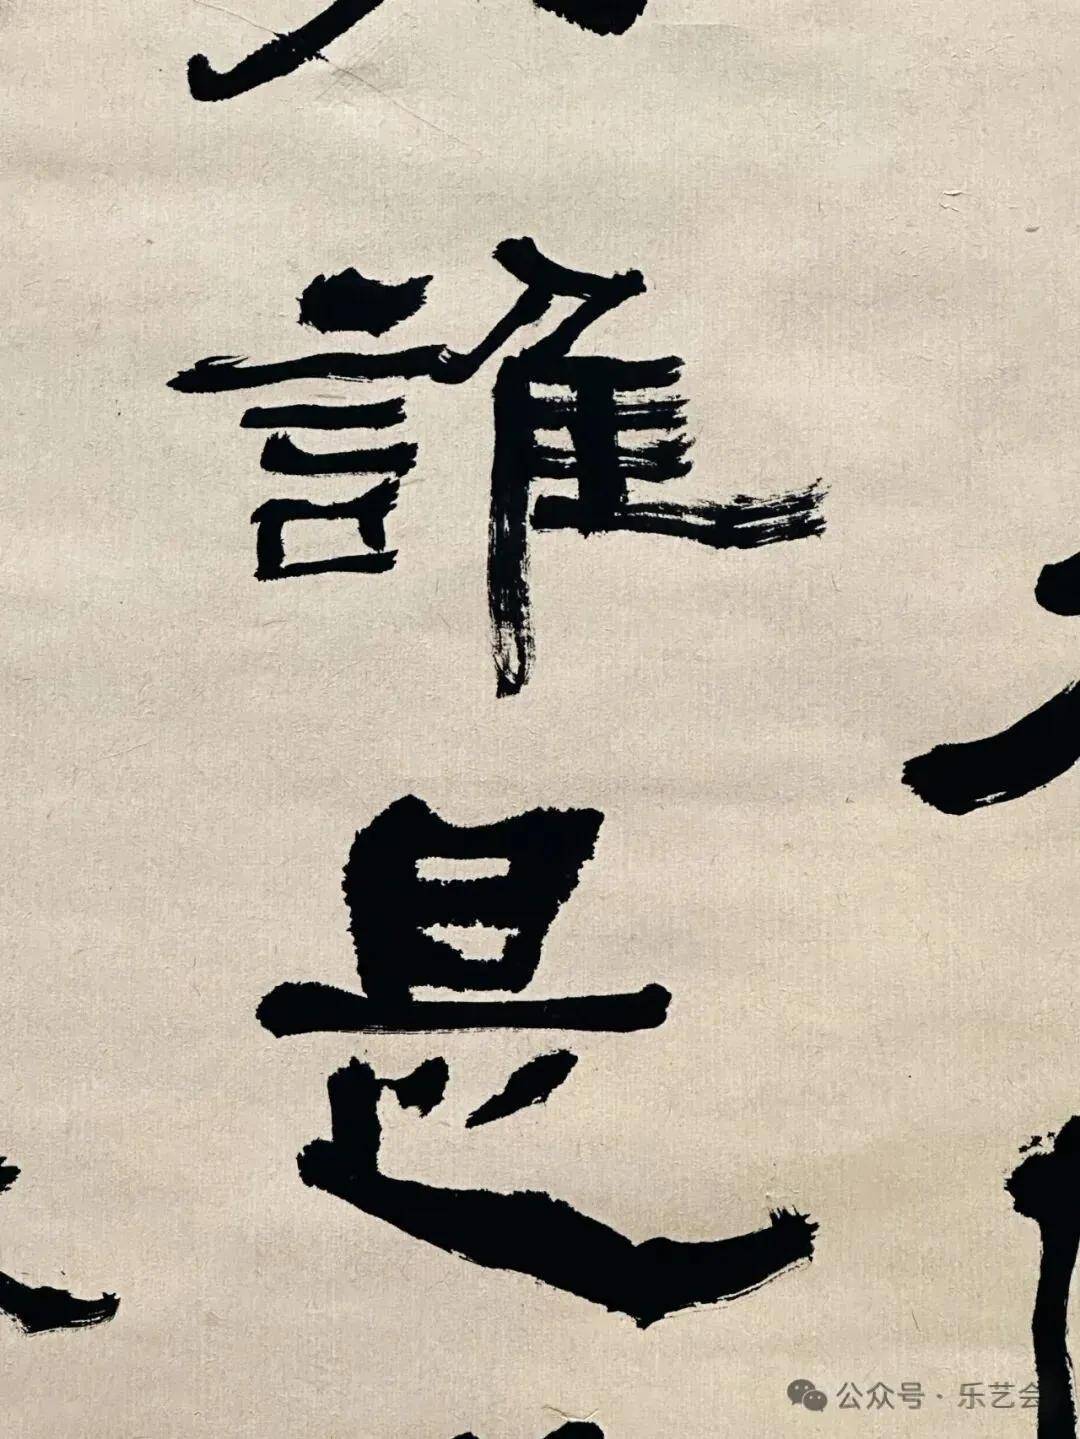 誰是
公众号·乐艺会